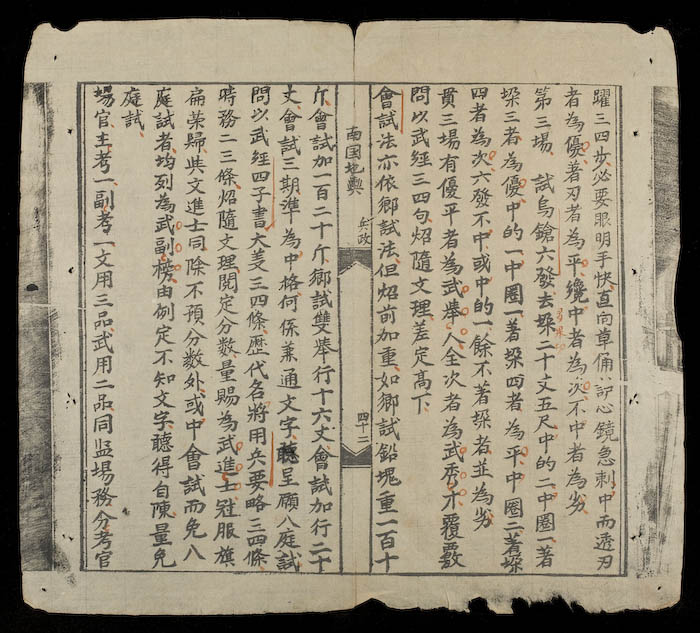 躍三四步必要眼明手快直向草俑心鏡急刺中而透刃
者為優著刃者為平纔中者為次不中者為劣
第三場 試鳥鎗六發去垜二十丈五尺中的二中圈一著
垜三者為優中的一中圈一著垜四者為平中圈二著垜
四者為次六發不中或中的一餘不著垜者並為劣
貫三場有優平者為武舉人全次者為武秀才覆覈
問以武經三四句炤隨文理差定高下
會試法亦依鄉試法但炤前加重如鄉試鉛塊重一百十
南国地輿 兵政 四十二
斤會試加一百二十斤鄉試雙舉行十六丈會試加行二十
丈會試三期準為中格何係兼通文字聴呈願入庭試
問以武經四子書大義三四條歷代名將用兵要略三四條
時務二三條炤隨文理閱定分數量賜為武進士冠服旗
扁榮歸與文進士同除不預分數外或中會試而免入
庭試者均列為武副榜由例定不知文字聴得自陳量免
庭試
場官主考一副考一文用三品武用二品同监場務分考官